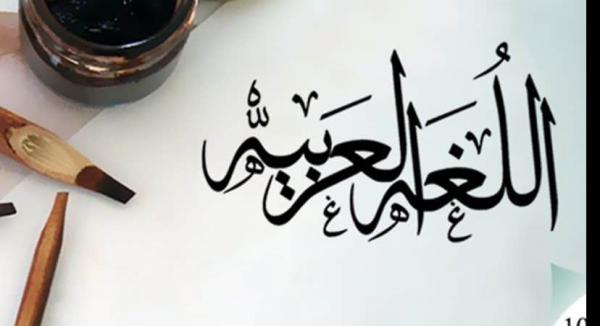 اللغه العربيه
10